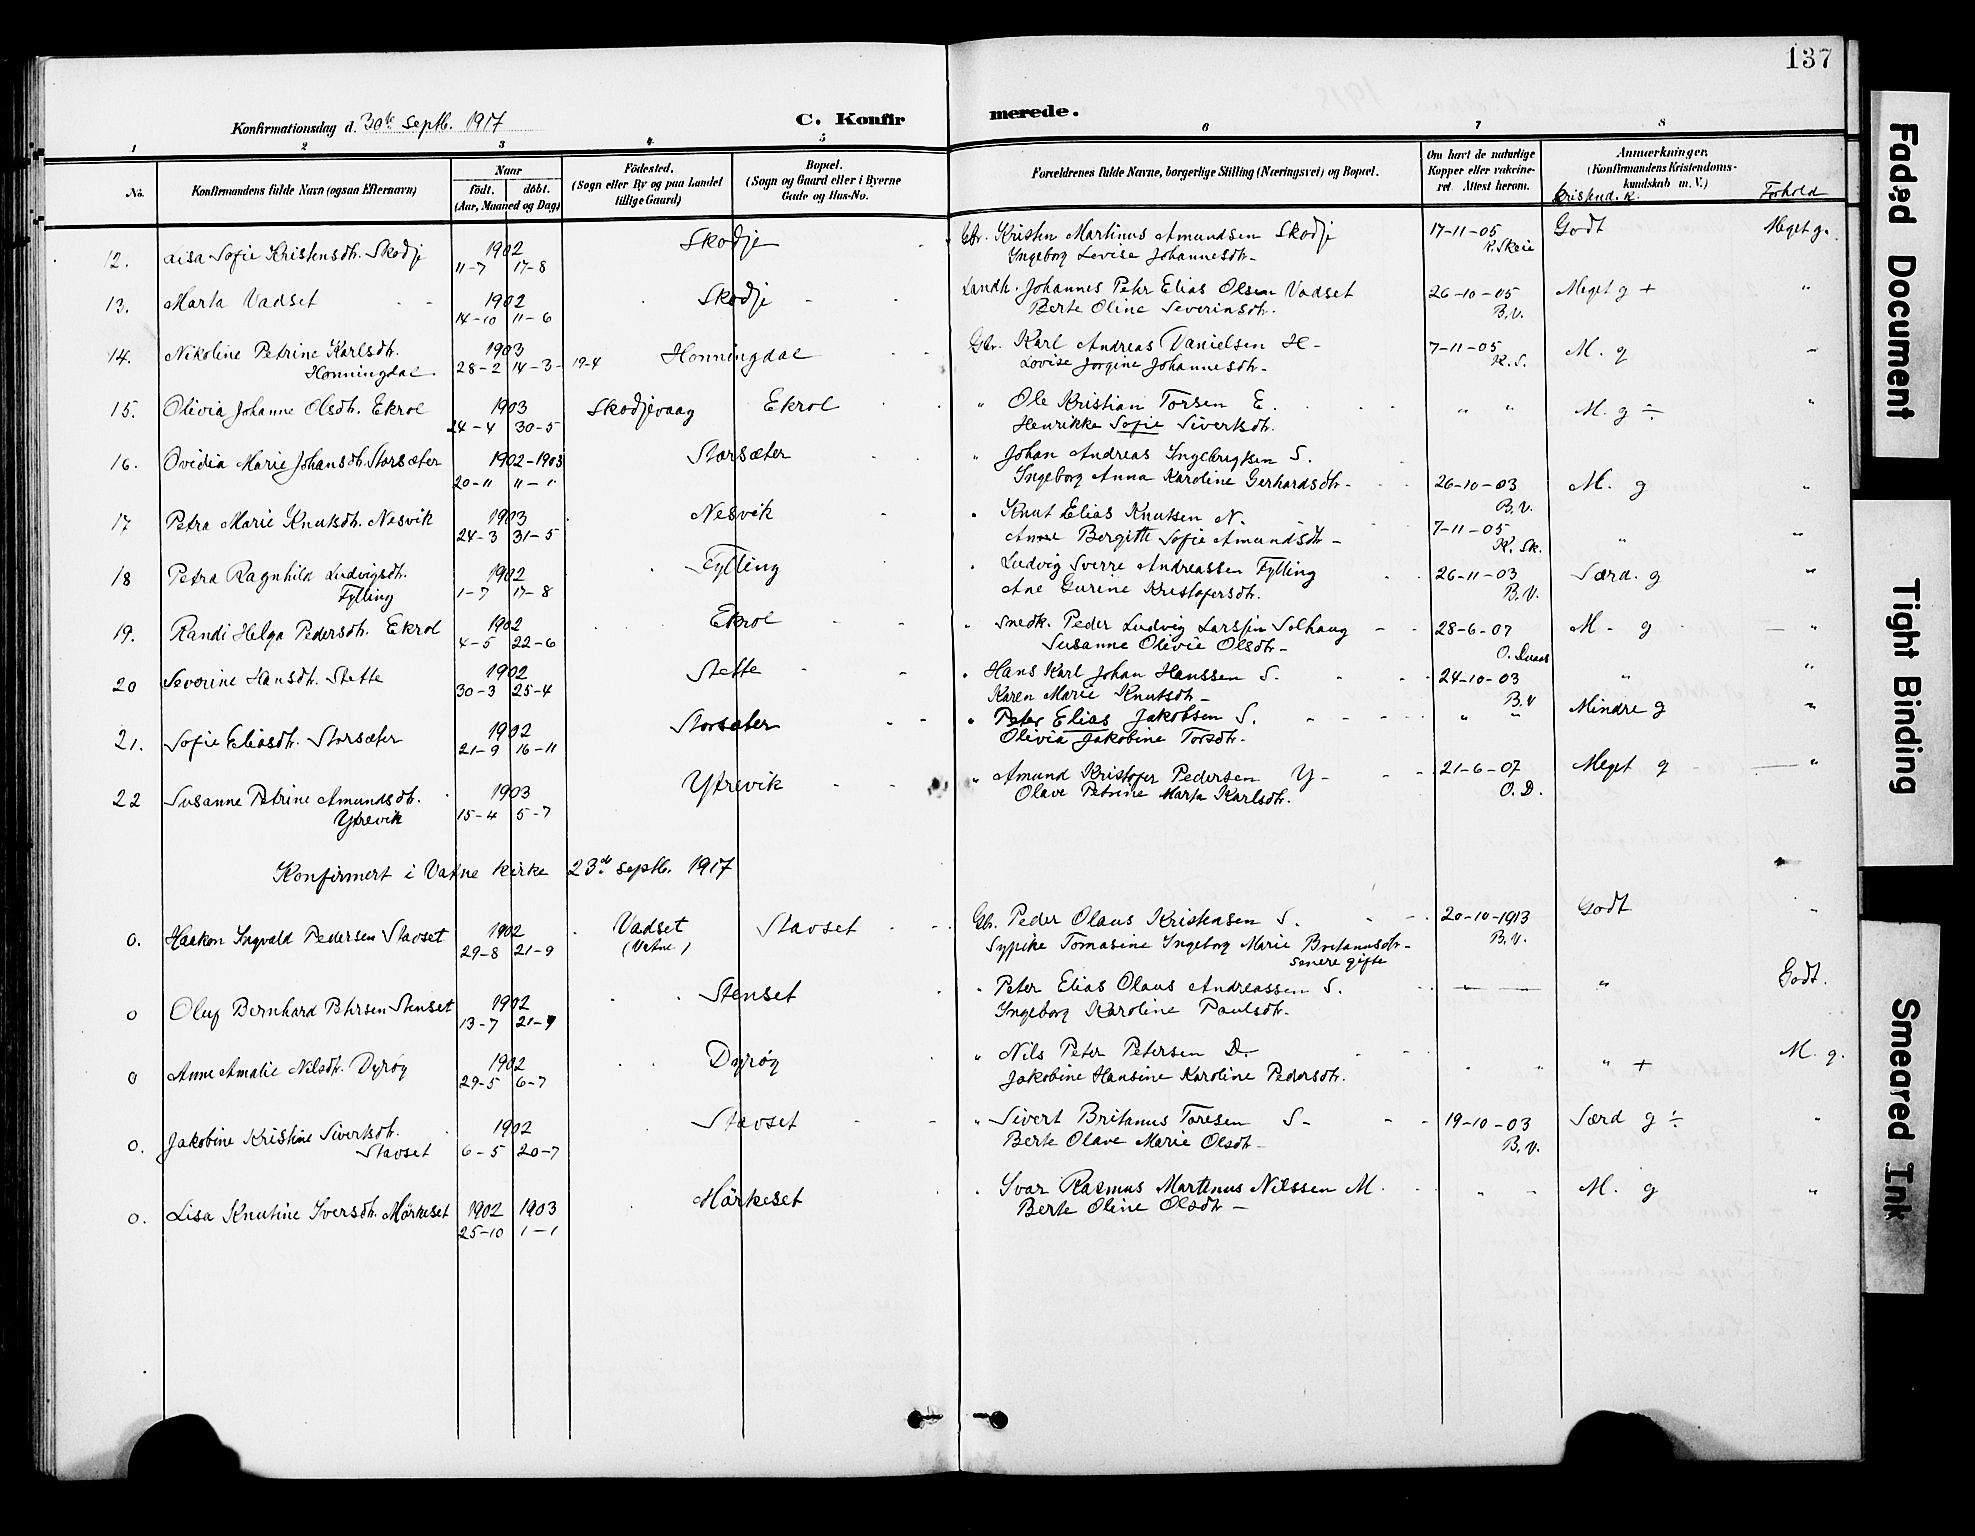 137
Konfirmationsdag d. 30te septb. 1917
C. Konfir
merede.
1 2 3 4 5 6 7 8
No.
Konfirmandens fulde Navn (ogsaa Efternavn)
Naar
födt. döbt.
(Aar, Maaned og Dag)
Födested.
(Sogn eller By og paa Landet
tillige Gaard)
Bopæl.
(Sogn og Gaard eller i Byerne
Gade og Hus-No.
Forældrenes fulde Navne, borgerlige Stilling (Næringsvei) og Bopæl.
Om havt de naturlige
Kopper eller vakcine-
ret Attest herom.
Anmærkninger.
(Konfirmandens Kristendoms-
kundskab m. V.)
Kristend. K. Forhold
12. Lisa Sofie Kristensdtr. Skodje 1902 Skodje Gbr. Kristen Martinus Amundsen Skodje 17-11-05 Godt Meget g.
11-7 17-8 Ingeborg Lovise Johannesdtr- K. Skeie
13. Marta Vadset 1902 Skodje Landh. Johannes Peter Elias Olsen Vadset 26-10-05 Meget g + "
14-10 11-6 Berte Oline Severinsdtr. B.V.
14. Nikoline Petrine Karlsdtr. 1903 Honningdal Gbr. Karl Andreas Danielsen H- 7-11-05 M. g "
Honningdal 28-2 14-3- 19-4 Lovise Jorgine Johannesdtr- K. S.
15. Olivia Johanne Olsdtr. Ekrol 1903 Skodjevaag Ekrol " Ole Kristian Torsen E. " " M. g ÷ "
24-4 30-5 Henrikke Sofie Sivertsdtr.
16. Ovidia Marie Johansdtr. Storsæter 1902-1903 Storsæter " Johan Andreas Ingebrigtsen S.
20-11 11-1 Ingeborg Anna Karoline Gerhardsdtr- 26-10-03 M. g "
B.V.
17 Petra Marie Knutsdtr. Nesvik 1903 Nesvik " Knut Elias Knutsen N. 7-11-05 " "
24-3 31-5 Anne Bergitte Sofie Amundsdtr- K. Sk.
18 Petra Ragnhild Ludvigsdtr. 1902 Fylling " Ludvig Sverre Andreassen Fylling 26-11-03 Særd. g "
Fylling 1-7 17-8 Ane Gurine Kristofersdtr. B.V.
19. Randi Helga Pedersdtr. Ekrol 1902 Ekrol " Snedk. Peder Ludvig Larssen Solhaug 28-6-07 M- g "
4-5 22-6 Susanne Olivie Olsdtr-
20 Severine Hansdtr. Stette 1902 Stette " Hans Karl Johan Hanssen S. 24-10-03 " "
30-3 25-4 Karen Marie Knutsdtr- B.V
21. Sofie Eliasdtr. Storsæter 1902 Storsæter " Peter Elias Jakobsen S. " " Mindre g "
21-9 16-11 Olivia Jakobine Torsdtr-
22 Susanne Petrine Amundsdtr. 1903 Ytrevik " Amund Kristofer Pedersen Y- 21-6-07 Meget g "
Ytrevik 15-4 5-7 Olave Petrine Marta Karlsdtr. O. D.
Konfirmert i Vatne kirke 23de septb. 1917
0. Haakon Ingvald Pedersen Stavset 1902 Vadset Stavset Gbr. Peder Olaus Kristensen S. 20-10-1913 Godt "
29-8 21-9 (Vatne) Tomasine Ingeborg Marie Britanusdtr- B.V.
senere gifte
0 Oluf Bernhard Petersen Stenset 1902 Stenset " Peter Elias Olaus Andreassen S. — — " Godt.
13-7 21-9 Ingeborg Karoline Paulsdtr-
0 Anne Amalie Nilsdtr. Dyrøy 1902 Dyrøy " Nils Peter Petersen D- " " " + M. g.
29-5 6-7 Jakobine Hansine Karoline Pedersdtr.
0. Jakobine Kristine Sivertsdtr. 1902 Stavset " Sivert Britanus Toresen S- 19-10-03 Særd g ÷ "
Stavset 6-5 20-7 Berte Olave Marie Olsdtr- B.V.
0. Lisa Knutine Iversdtr. Mörkeset 1902 1903 Mörkeset " Ivar Rasmus Martinus Nilssen M. " " M. g "
25-10 1-1 Berte Oline Olsdtr-
Faded Document
Tight Binding
Smeared Ink